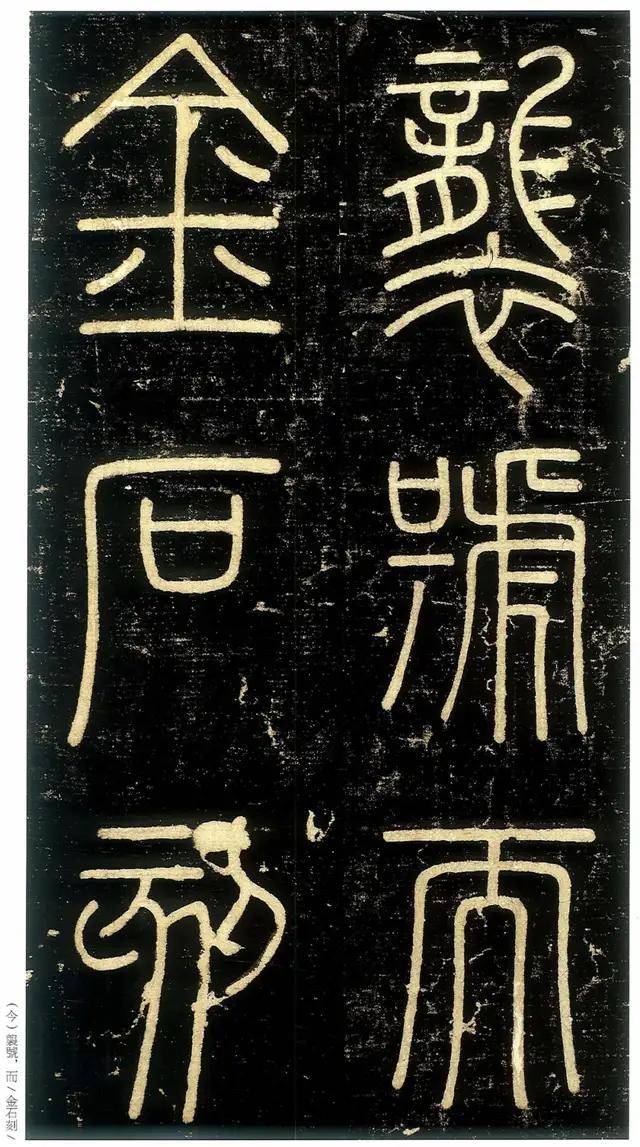 襲號而
金石刻
（今）襲號，而／金石刻／